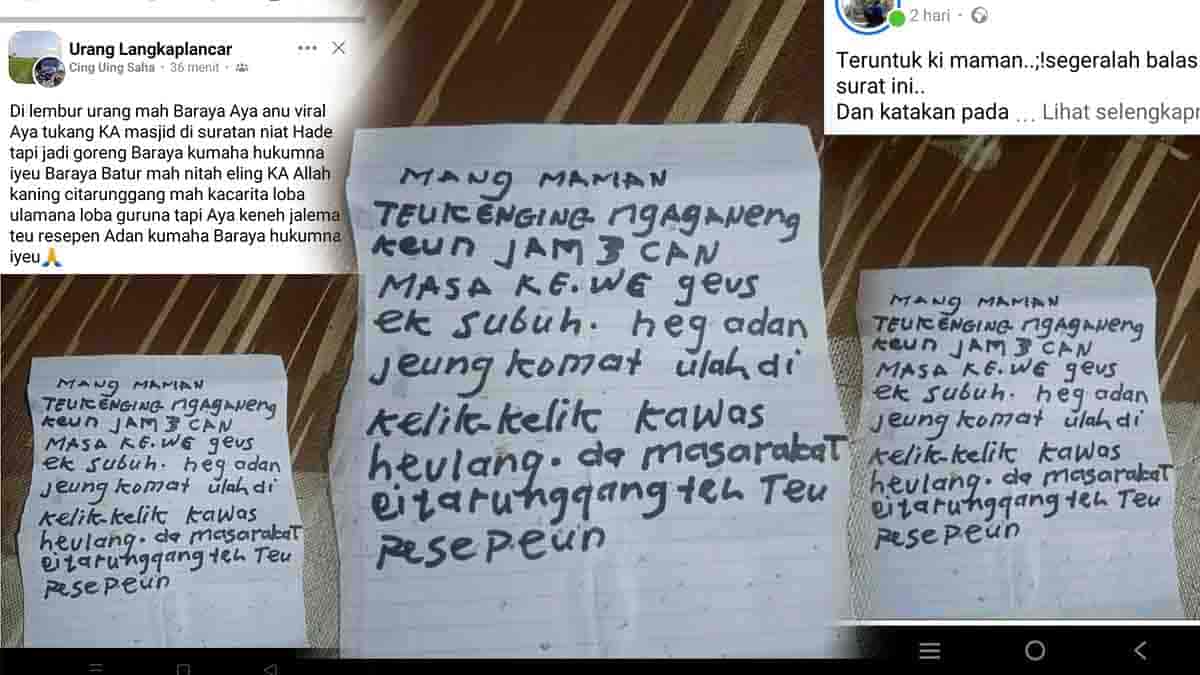 Urang Langkaplancar
Cing Uing Saha · 36 menit ·
Di lembur urang mah Baraya Aya anu viral
Aya tukang KA masjid di suratan niat Hade
tapi jadi goreng Baraya kumaha hukumna
iyeu Baraya Batur mah nitah eling KA Allah
kaning citarunggang mah kacarita loba
ulamana loba guruna tapi Aya keneh jalema
teu resepen Adan kumaha Baraya hukumna
iyeu🙏
MANg MAMAN
TEUKENGING NgAgANeng
KeUN JAM 3 CAN
MASA KE.WE geus
ek subuh. heg adan
jeung komat ulah di
kelik-kelik kawas
heulang. da masarakaT
citarunggang teh Teu
ResePeun
MANg MAMAN
TEUKENGING NgAgANeng
KeUN JAM 3 CAN
MASA KE.WE geus
ek subuh. heg adan
jeung komat ulah di
kelik-kelik kawas
heulang. da masarakaT
citarunggang teh Teu
ResePeun
2 hari ·
Teruntuk ki maman..;!segeralah balas
surat ini..
Dan katakan pada ... Lihat selengkapn
MANg MAMAN
TEUKENGING NgAgANeng
KeUN JAM 3 CAN
MASA KE.WE geus
ek subuh. heg adan
jeung komat ulah di
kelik-kelik kawas
heulang. da masarakaT
citarunggang teh Teu
ResePeun